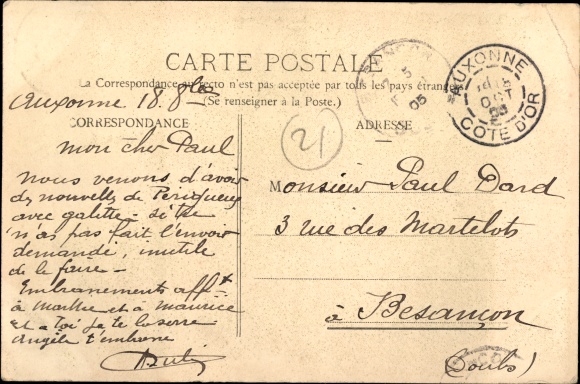 CARTE POSTALE
La Correspondance au recto n'est pas acceptée par tous les pays étrangers
(Se renseigner à la Poste.)
Auxonne 18. 8bre
CORRESPONDANCE
ADRESSE
21
AUXONNE
OCT
05
COTE D'OR
BESANCON
05
mon cher Paul
nous venons d'avoir
des nouvelles de Perigueux
avec galette - si tu
n'as pas fait l'envoi
demandé, inutile
de le faire -
Embrassements afft
à Marthe et à Maurice
et a toi je te la serre
Angèle t'embrasse
Monsieur Paul Dard
3 rue des Martelots
à Besançon
(Doubs)